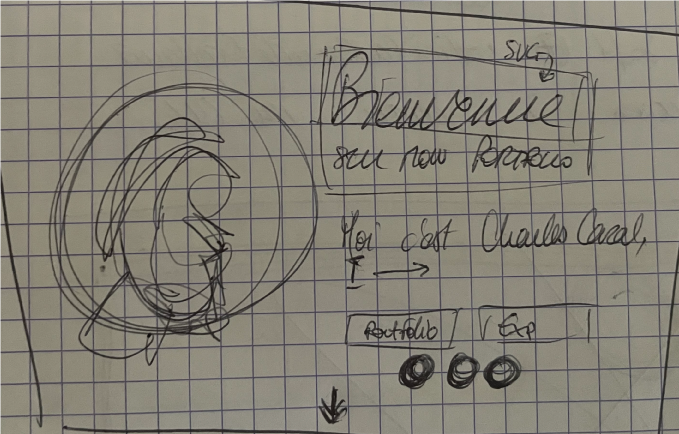 SVG
Bienvenue
sur mon Portfolio
Moi c'est Charles Cazal,
I
Portfolio Exp